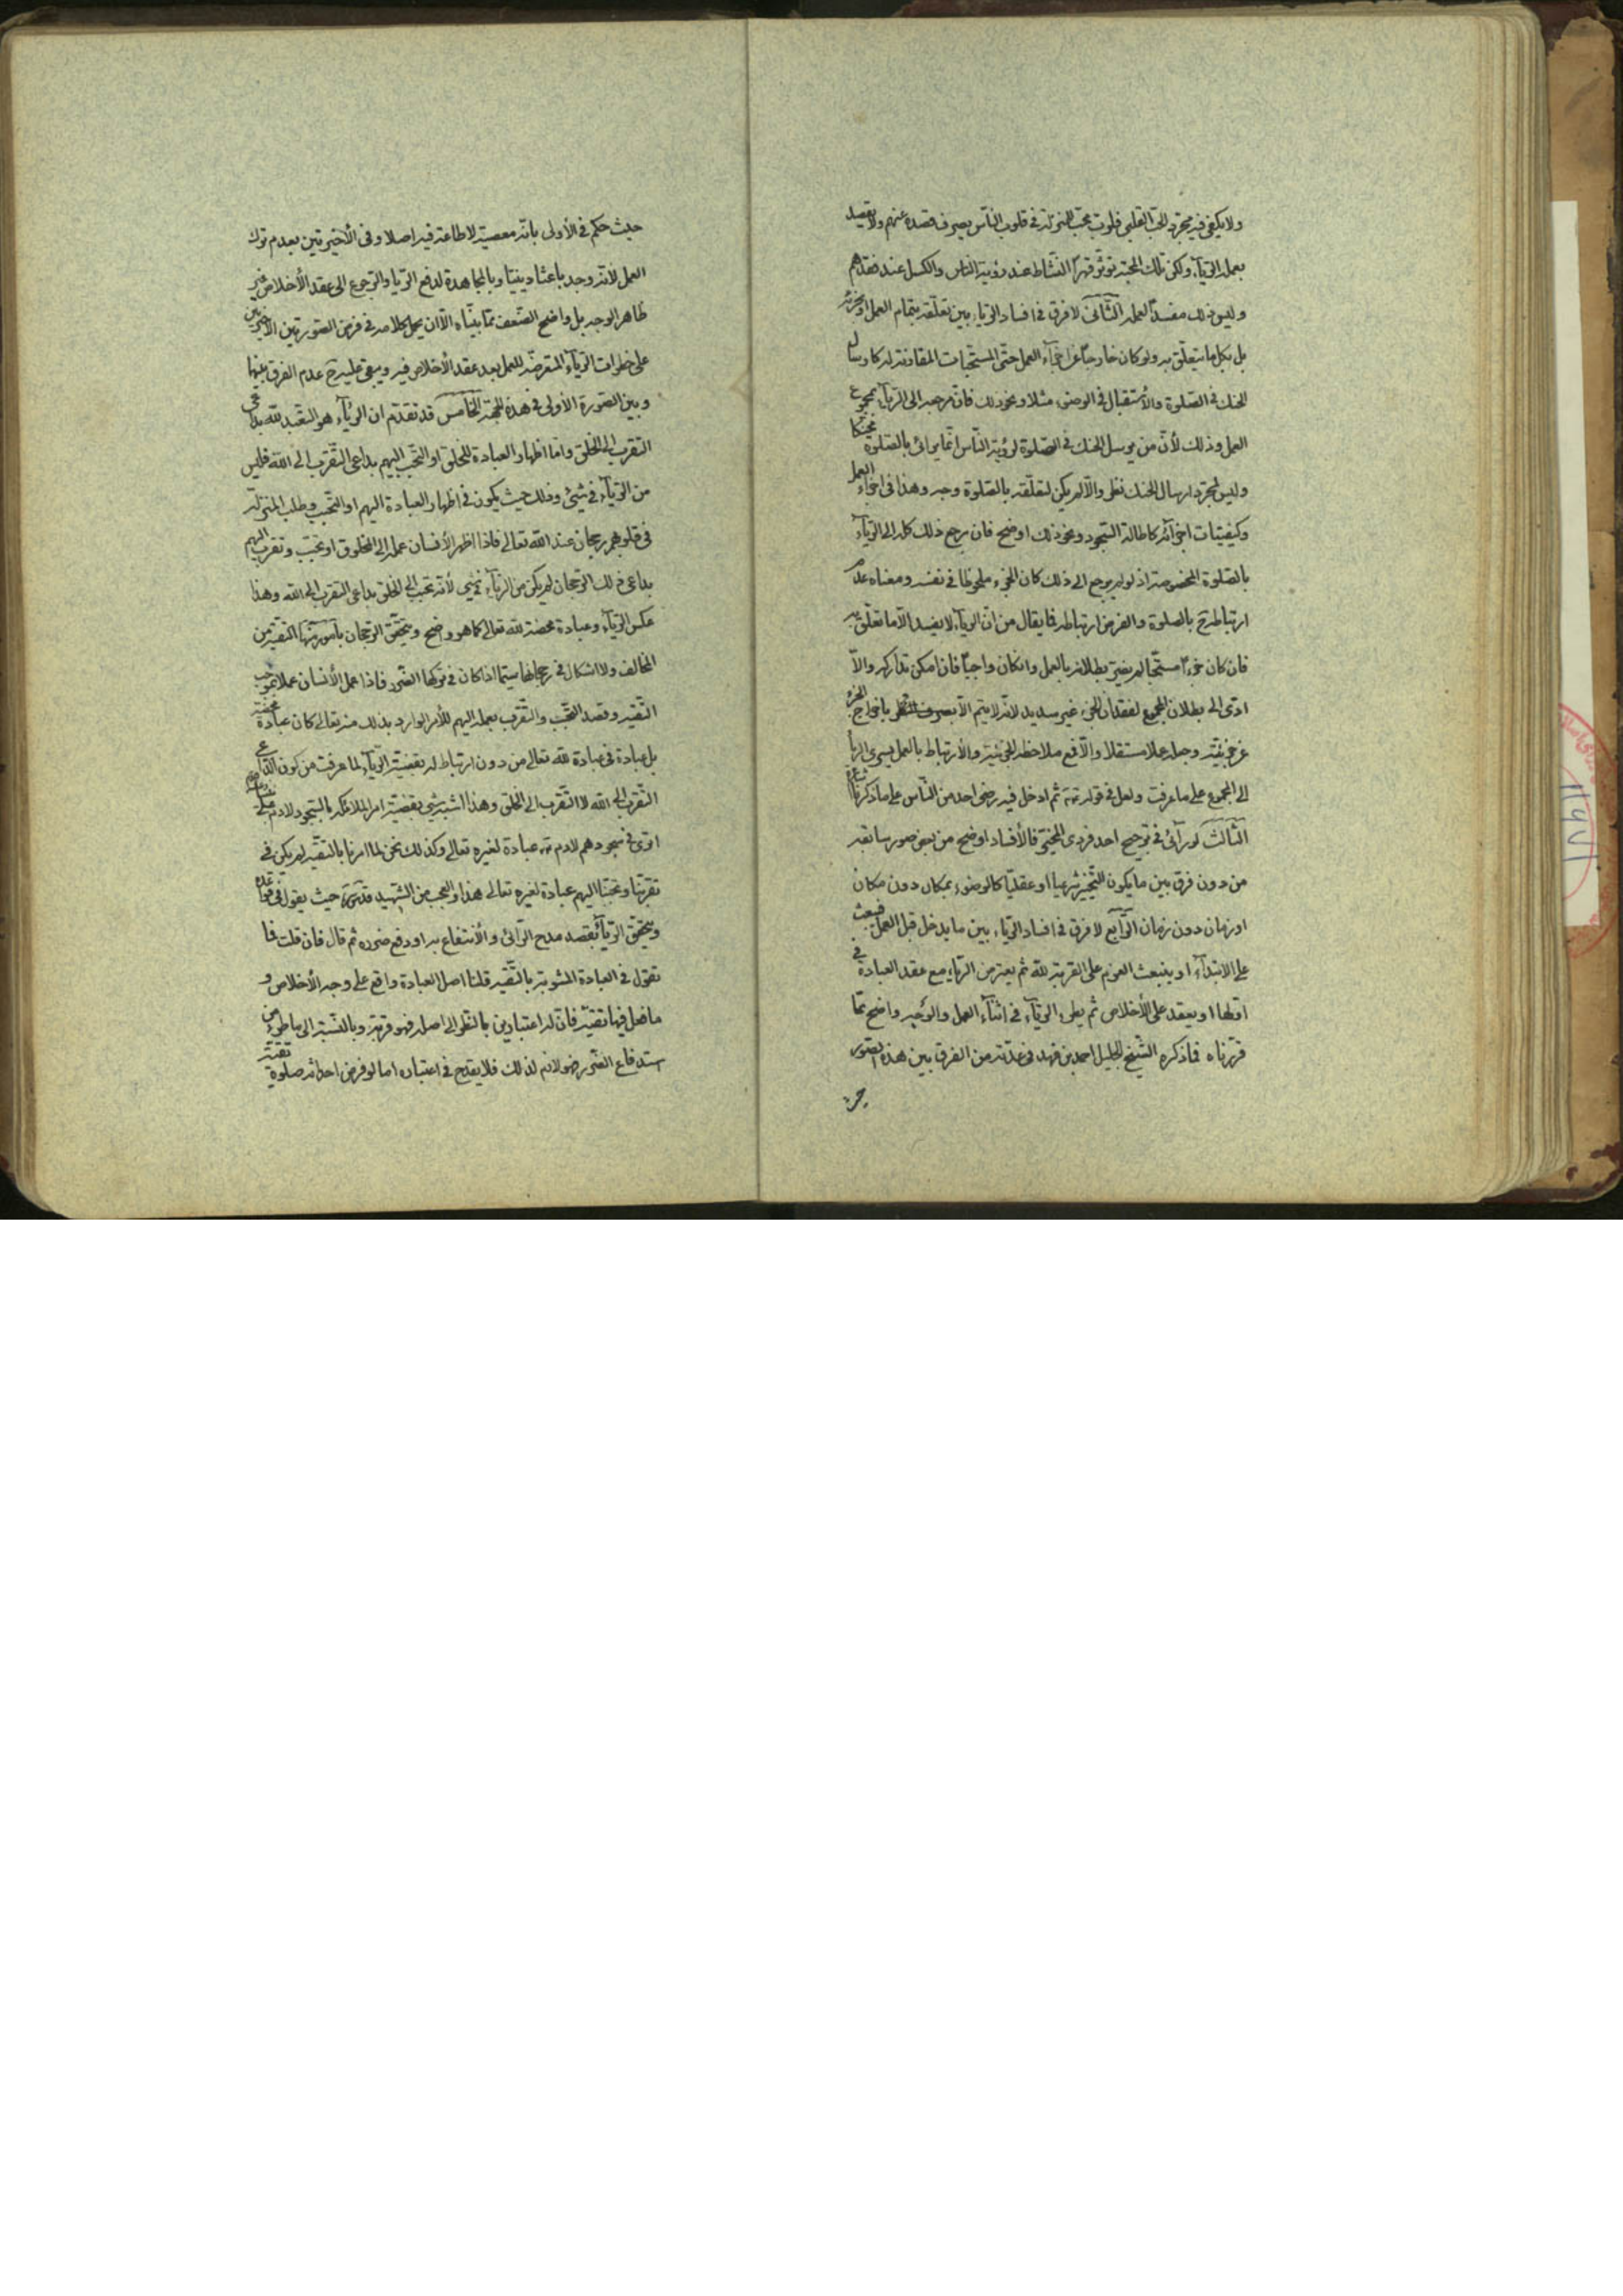 ولا يكفى فيه مجرد الحب القلبى فلرب محب للمنزلة فى قلوب الناس يصرف قصده عنهم ولا يقصد
بعمله الريآء ولكن تلك المحبة توثر قهرا النشاط عند رؤية الناس والكسل عند فقدهم
وليس ذلك مفسدا لعمله الثانى لا فرق فى افساد الريآء بين تعلقه بتمام العمل او بجزئه
بل بكل ما يتعلق به ولو كان خارجا عن اجزآء العمل حتى المستحبات المقارنة له كارسال
الحنك فى الصلوة والأستقبال فى الوضوء مثلا ونحو ذلك فان مرجعه الى الريآء بمجموع
العمل وذلك لأن من يرسل الحنك فى الصلوة لرؤية الناس انما يرائى بالصلوة محنكا
وليس لمجرد ارسال الحنك نظر والا لم يكن لتعلقه بالصلوة وجه وهذا فى اجزاء العمل
وكيفيات اجزآئه كاطالة السجود ونحو ذلك اوضح فان مرجع ذلك كله الى الريآء
بالصلوة المخصوصة اذ لو لم يرجع الى ذلك كان الجزء ملحوظا فى نفسه ومعناه عدم
ارتباطه ح بالصلوة والفرض ارتباطه فما يقال من ان الريآء لا يفسد الا ما تعلق به
فان كان جزءا مستحبا لم يضر بطلانه بالعمل وان كان واجبا فان امكن تداركه والا
ادى الى بطلان المجموع لفقدان الجزء غير سديد لانه لا يتم الا بصرف النظر باخراج الجزء
عن جزئيته وجعله عملا مستقلا والا فمع ملاحظة الجزئية والأرتباط بالعمل يسرى الريآ
الى المجموع على ما عرفت ولعل فى قوله ثم ادخل فيه رضى احد من الناس على ما ذكرنا
الثالث لو رآئى فى ترجيح احد فردى المخير فالأفساد اوضح من بعض صور سابقه
من دون فرق بين ما يكون التخيير شرعيا او عقليا كالوضوء بمكان دون مكان
او زمان دون زمان الرابع لا فرق فى افساد الريآء بين ما يدخل قبل العمل فيبعث
على الابتدآء او ينبعث العزم على القربة لله ثم يعترض الريآء مع عقد العبادة فى
اولها او يعقد على الأخلاص ثم يطرء الريآء فى اثنآء العمل والوجه واضح مما
قررناه فما ذكره الشيخ الجليل احمد بن فهد فى عدته من الفرق بين هذه الصور
حيث
حيث حكم فى الأولى بانه معصية لا طاعة فيه اصلا وفى الأخيرتين بعدم ترك
العمل لأنه وجد باعثا دينيا وبالمجاهدة لدفع الريا والرجوع الى عقد الأخلاص غير
ظاهر الوجه بل واضح الضعف مما بيناه الا ان يحمل كلامه فى فرض الصورتين الأخيرتين
على خطرات الريآء المتعرضة للعمل بعد عقد الأخلاص فيه ويبقى عليه ح عدم الفرق بينها
وبين الصورة الأولى فى هذه الجهة الخامس قد تقدم ان الريآء هو التعبد لله بداعى
التقرب الى الخلق واما اظهار العبادة للخلق او التحبب اليهم بداعى التقرب الى الله فليس
من الريآء فى شئ وذلك حيث يكون فى اظهار العبادة اليهم او التحبب وطلب المنزلة
فى قلوبهم رجحان عند الله تعالى فاذا اظهر الأنسان عمله الى المخلوق او تحبب وتقرب اليهم
بداعى ذلك الرجحان لم يكن من الريآء فى شئ لأنه تحبب الى الخلق بداعى التقرب الى الله وهذا
عكس الريآء وعبادة محضة لله تعالى كما هو واضح ويتحقق الرجحان بامور منها التقية من
المخالف ولا اشكال فى رجحانها سيما اذا كان فى تركها الضرر فاذا عمل الأنسان عملا بموجب
التقية وقصد التحبب والتقرب بعمله اليهم للأمر الوارد بذلك منه تعالى كان عبادة محضة
بل عبادة فى عبادة لله تعالى من دون ارتباط له بقضية الريآء لما عرفت من كون الداعى
التقرب الى الله لا التقرب الى الخلق وهذا اشبه شئ بقضية امر الملائكة بالسجود لادم
اترى فى سجودهم لادم عبادة لغيره تعالى وكذلك نحن لما امرنا بالتقية لم يكن فى
تقربنا وتحببنا اليهم عبادة لغيره تعالى هذا والعجب من الشهيد قدس سره حيث يقول فى قواعده
ويتحقق الريآء بقصد مدح الرائى والأنتفاع به او دفع ضرره ثم قال فان قلت فما
تقول فى العبادة المشوبة بالتقية قلنا اصل العبادة واقع على وجه الأخلاص و
ما فعل فيها تقية فان له اعتبارين بالنظر الى اصله فهو قربة وبالنسبة الى ما طرء من
استدفاع الضرر فهو لازم لذلك فلا يقدح فى اعتباره اما لو فرض احداثه صلوة تقية